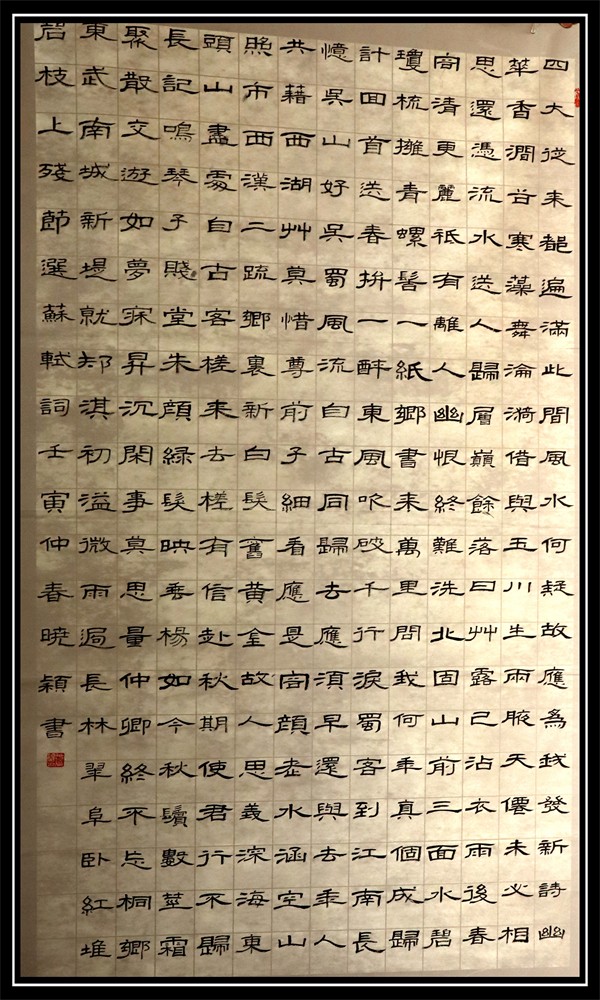 四大從来都遍滿此間風水何疑故應為我發新詩幽
華香澗谷寒藻舞淪漪借與玉川生兩腋天僊未必相
思還憑流水送人歸層巔餘落日艸露已沾衣雨後春
容清更麗袛有離人幽恨終難洗北固山前三面水碧
瓊梳擁青螺髻一紙鄉書来萬里問我何年真個成歸
計回首送春拚一醉東風吹破千行淚蜀客到江南長
憶吳山好吳蜀風流自古同歸去應須早還與去年人
共藉西湖艸莫惜尊前子細看應是容顏老水涵空山
照市西漢二疏鄉裏新白髮舊黃金故人思義深海東
頭山盡處自古客槎来去槎有信赴秋期使君行不歸
長記鳴琴子賤堂朱顏綠髮映垂楊如今秋鬢數莖霜
聚散交遊如夢寐昇沉閑事莫思量仲卿終不忘桐鄉
東武南城新堤就郟淇初溢微雨過長林翠阜臥紅堆
碧枝上殘節選蘇軾詞壬寅仲春曉穎書